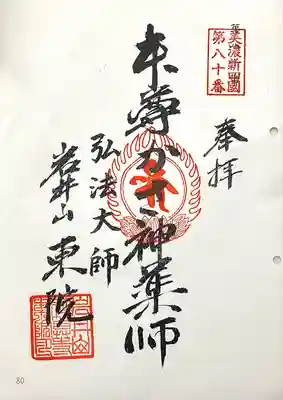 美濃新四國
第八十番
奉拝
本尊かさ神薬師
弘法大師
岩井山
東院
80